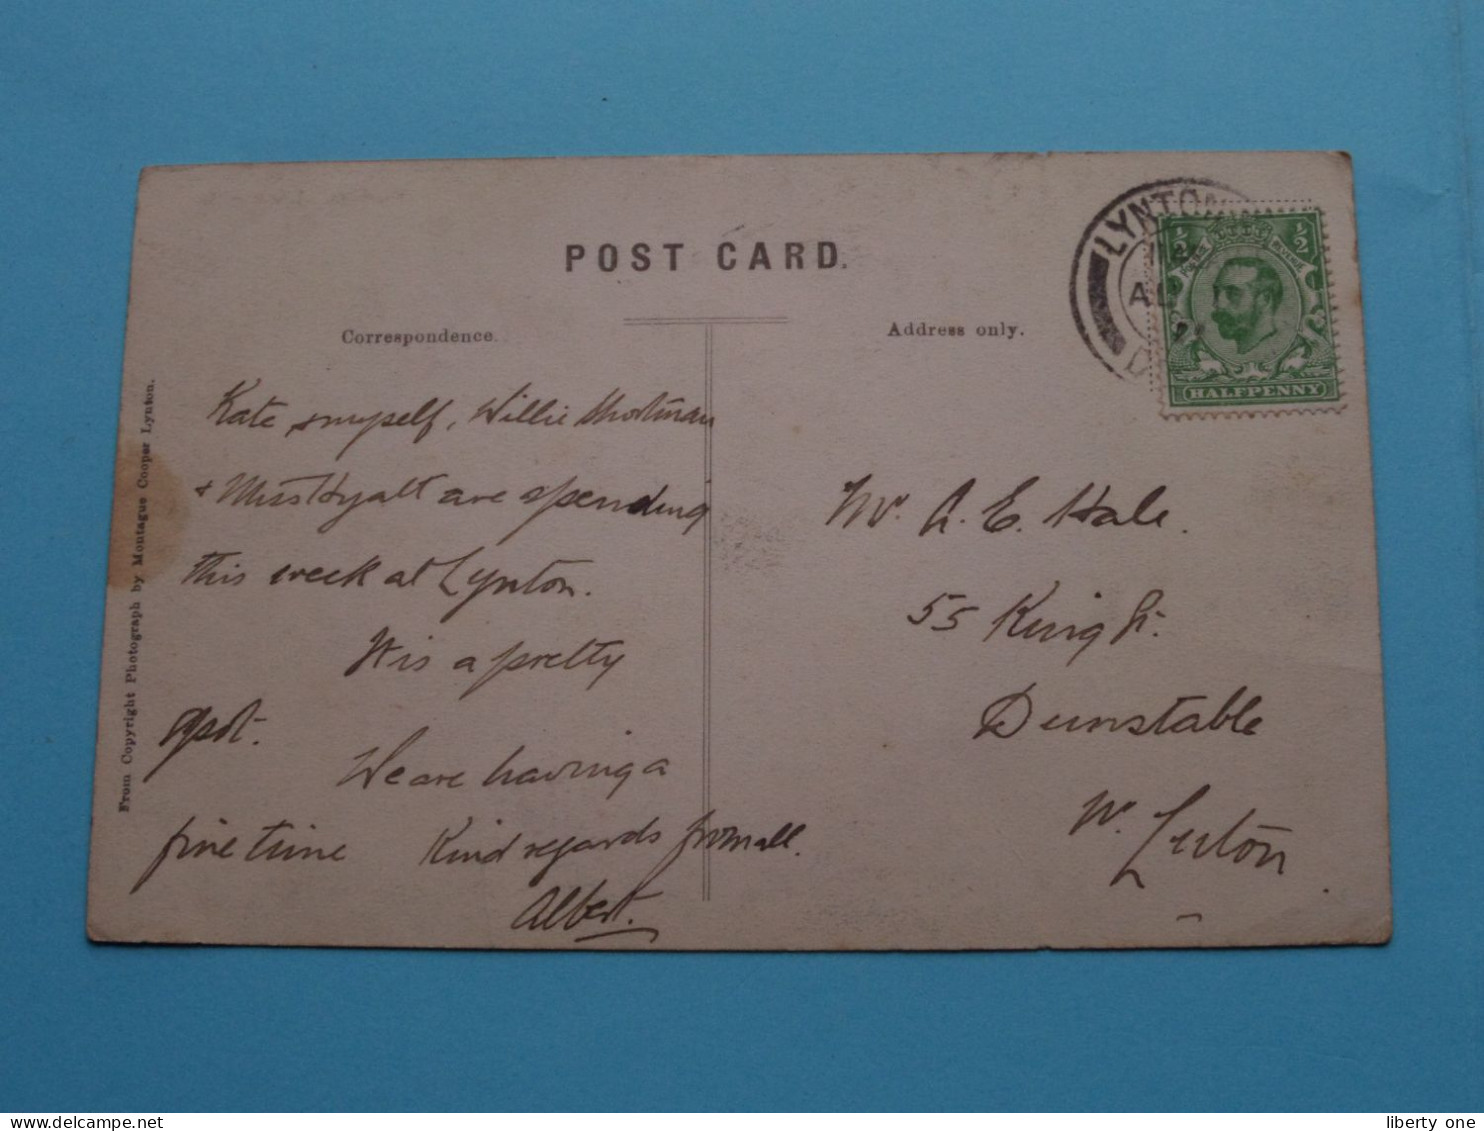 POST CARD.
Correspondence.
Address only.
From Copyright Photograph by Montague Cooper Lynton.
Kate & myself, Willie
& Miss Hyatt are spending
this week at Lynton.
It is a pretty
spot.
We are having a
fine time Kind regards from all.
Albert.
Mr. A. E. Hale.
55 King St.
Dunstable
Nr. Luton
LYNTON
AU
½ ½
HALFPENNY
liberty one